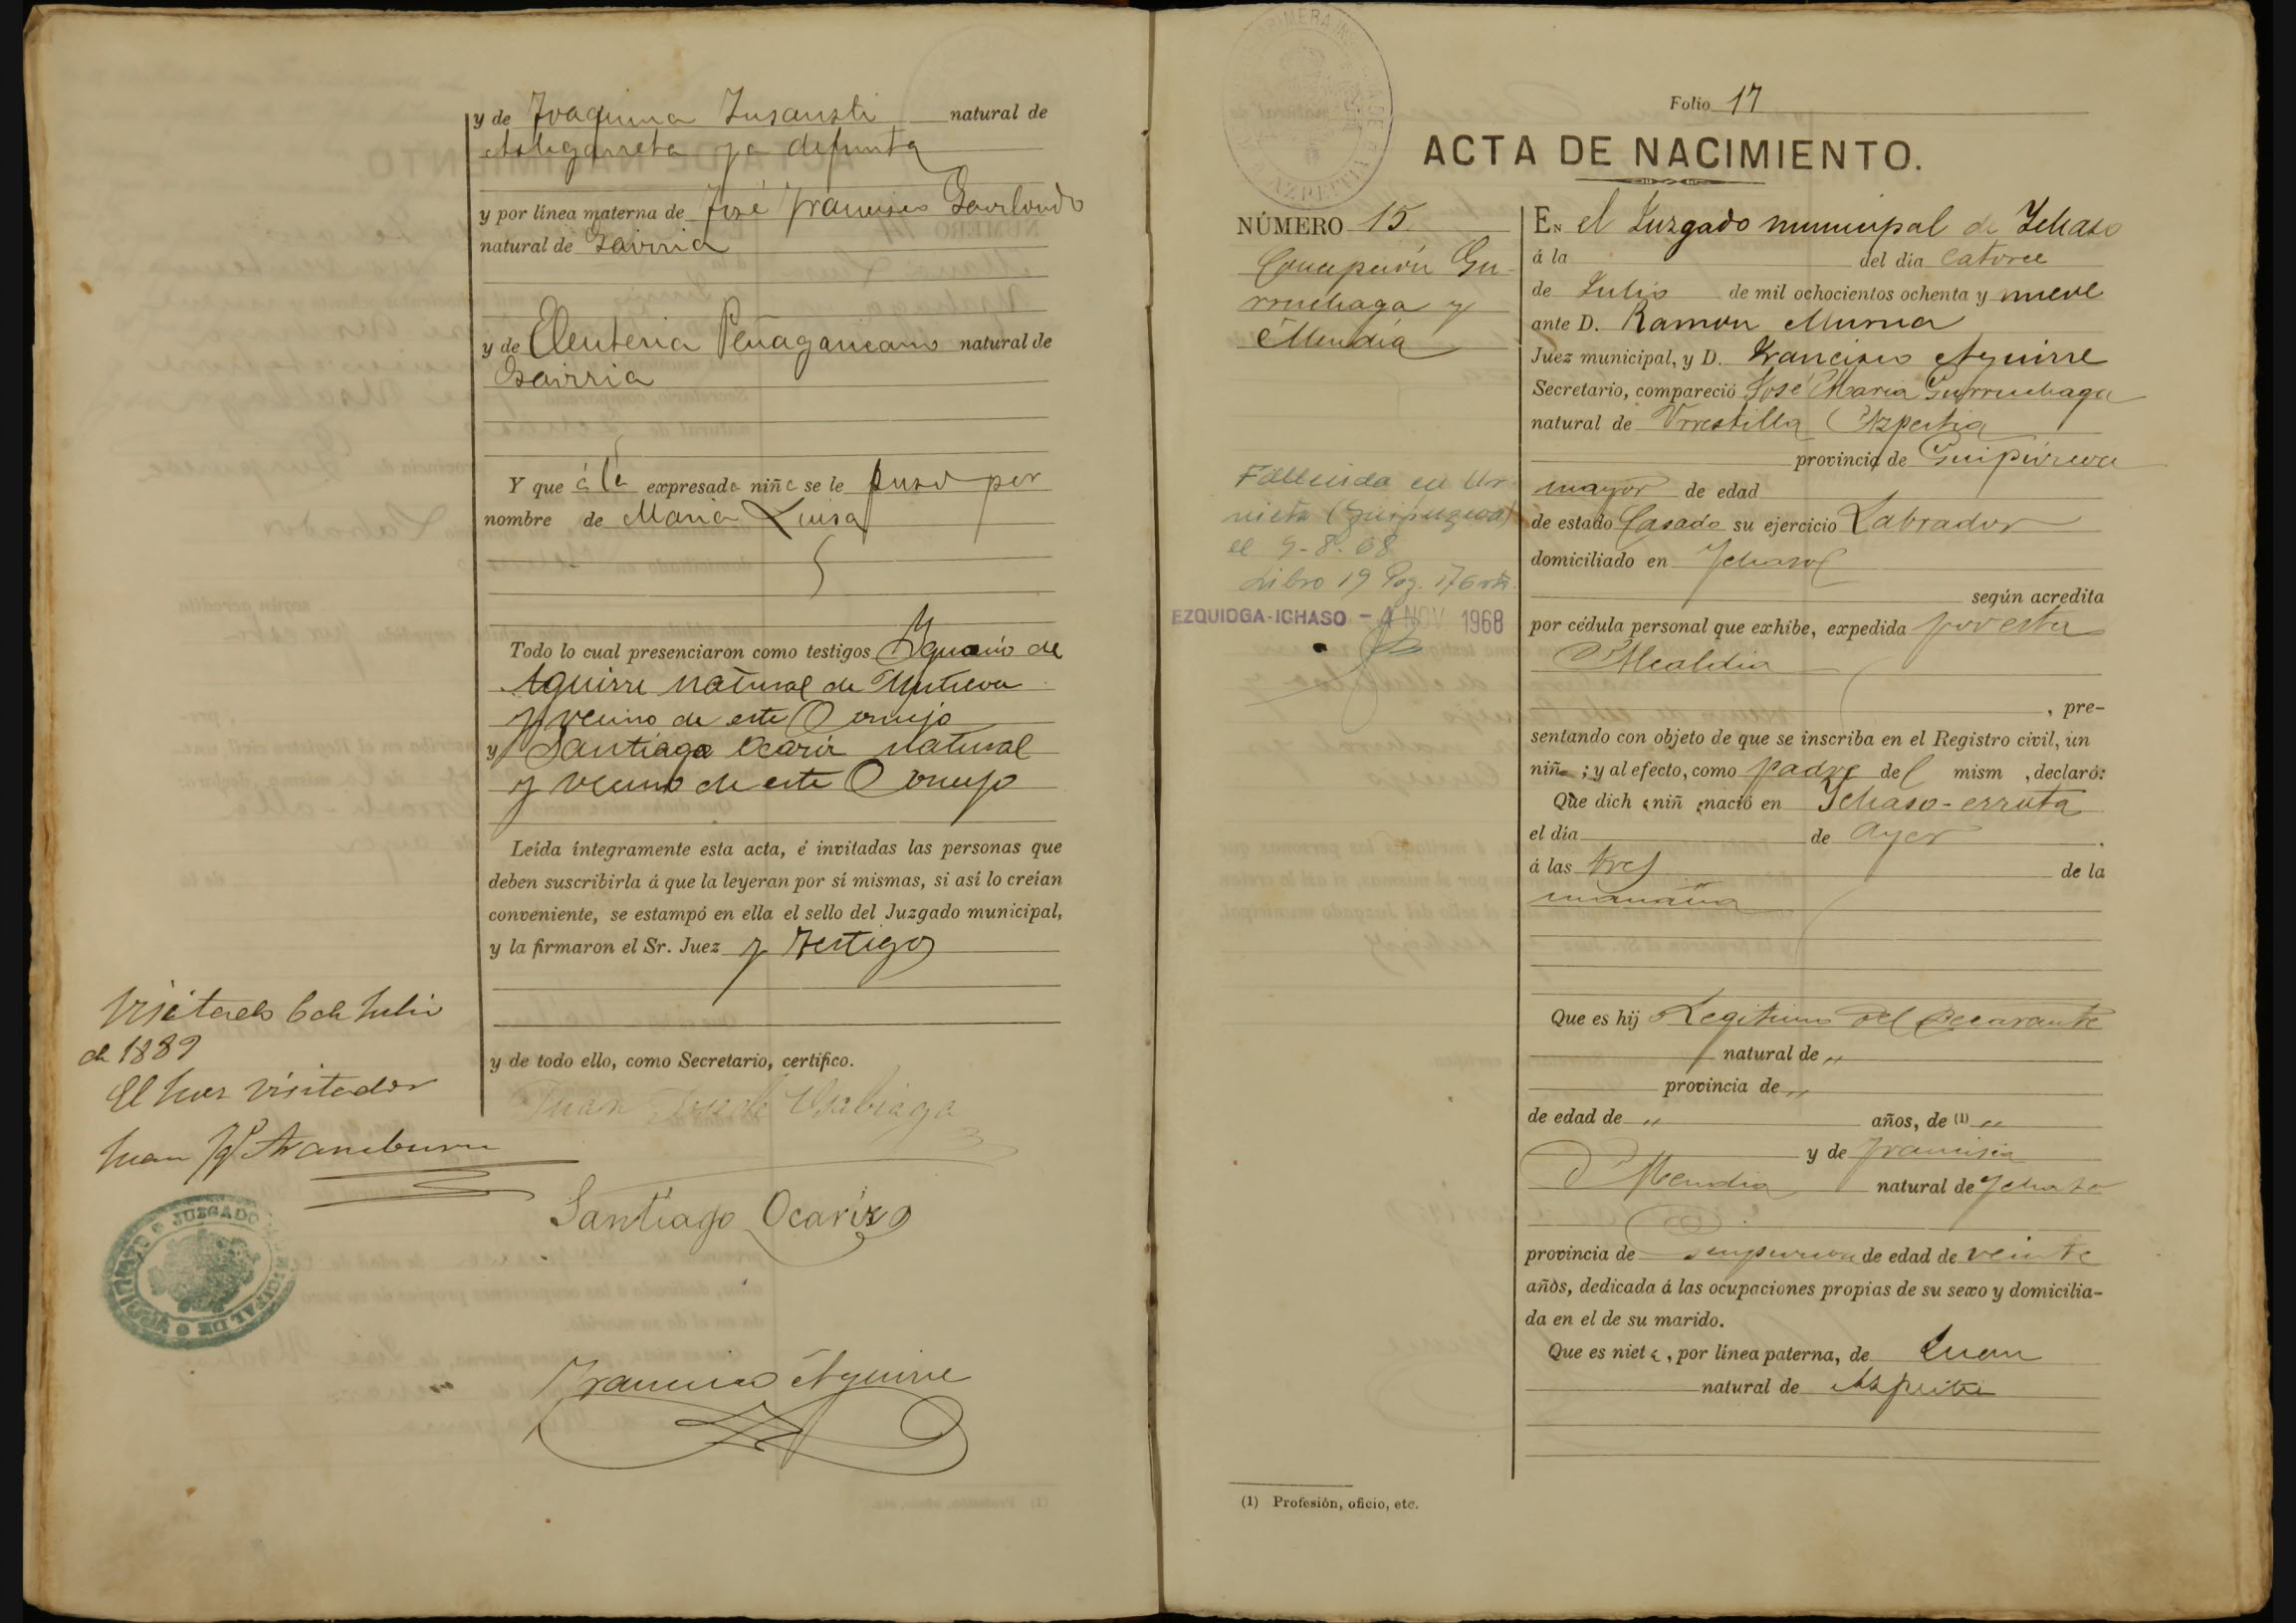 y de Joaquina Insausti natural de
Astigarreta ya difunta
y por línea materna de José Francisco Garilondo
natural de Gaviria
y de Eleuteria Peñagaricano natural de
Gaviria
Y que á la expresada niña se le puso por
nombre de Maria Luisa
Todo lo cual presenciaron como testigos Ygnacio de
Aguirre natural de
y vecino de este Concejo
y Santiago Ocariz natural
y vecino de este Concejo
Leída íntegramente esta acta, é invitadas las personas que
deben suscribirla á que la leyeran por sí mismas, si así lo creían
conveniente, se estampó en ella el sello del Juzgado municipal,
y la firmaron el Sr. Juez y testigos
y de todo ello, como Secretario, certifico.
Juan José de Usabiaga
Santiago Ocariz
Francisco Aguirre
Visitado 6 de Julio
de 1889
El Juez Visitador
Juan Aramburu
JUZGADO MUNICIPAL DE
Folio 17
ACTA DE NACIMIENTO.
NÚMERO 15.
Concepción Gu-
rruchaga y
Mendia
Fallecida en Ur-
nieta (Guipuzcoa)
el 9-8-68
Libro 19 Pag. 176
EZQUIOGA-ICHASO - 4 NOV 1968
EN el Juzgado municipal de Ychaso
á la del día Catorce
de Julio de mil ochocientos ochenta y nueve
ante D. Ramon Murua
Juez municipal, y D. Francisco Aguirre
Secretario, compareció José Maria Gurruchaga
natural de Urrestilla Azpeitia
provincia de Guipúzcoa
mayor de edad
de estado Casado su ejercicio Labrador
domiciliado en Ychaso
según acredita
por cédula personal que exhibe, expedida por esta
Alcaldia
, pre-
sentando con objeto de que se inscriba en el Registro civil, un
niña ; y al efecto, como padre del mism , declaró:
Que dich a niñ a nació en Ychaso-errota
el día de Ayer .
á las tres de la
mañana
Que es hij Legitimo del Declarante
natural de "
provincia de "
de edad de " años, de (1) "
y de Francisca
Mendia natural de Ychaso
provincia de Guipuzcoa de edad de veinte
años, dedicada á las ocupaciones propias de su sexo y domicilia-
da en el de su marido.
Que es niet a, por línea paterna, de Juan
natural de Azpeitia
(1) Profesión, oficio, etc.